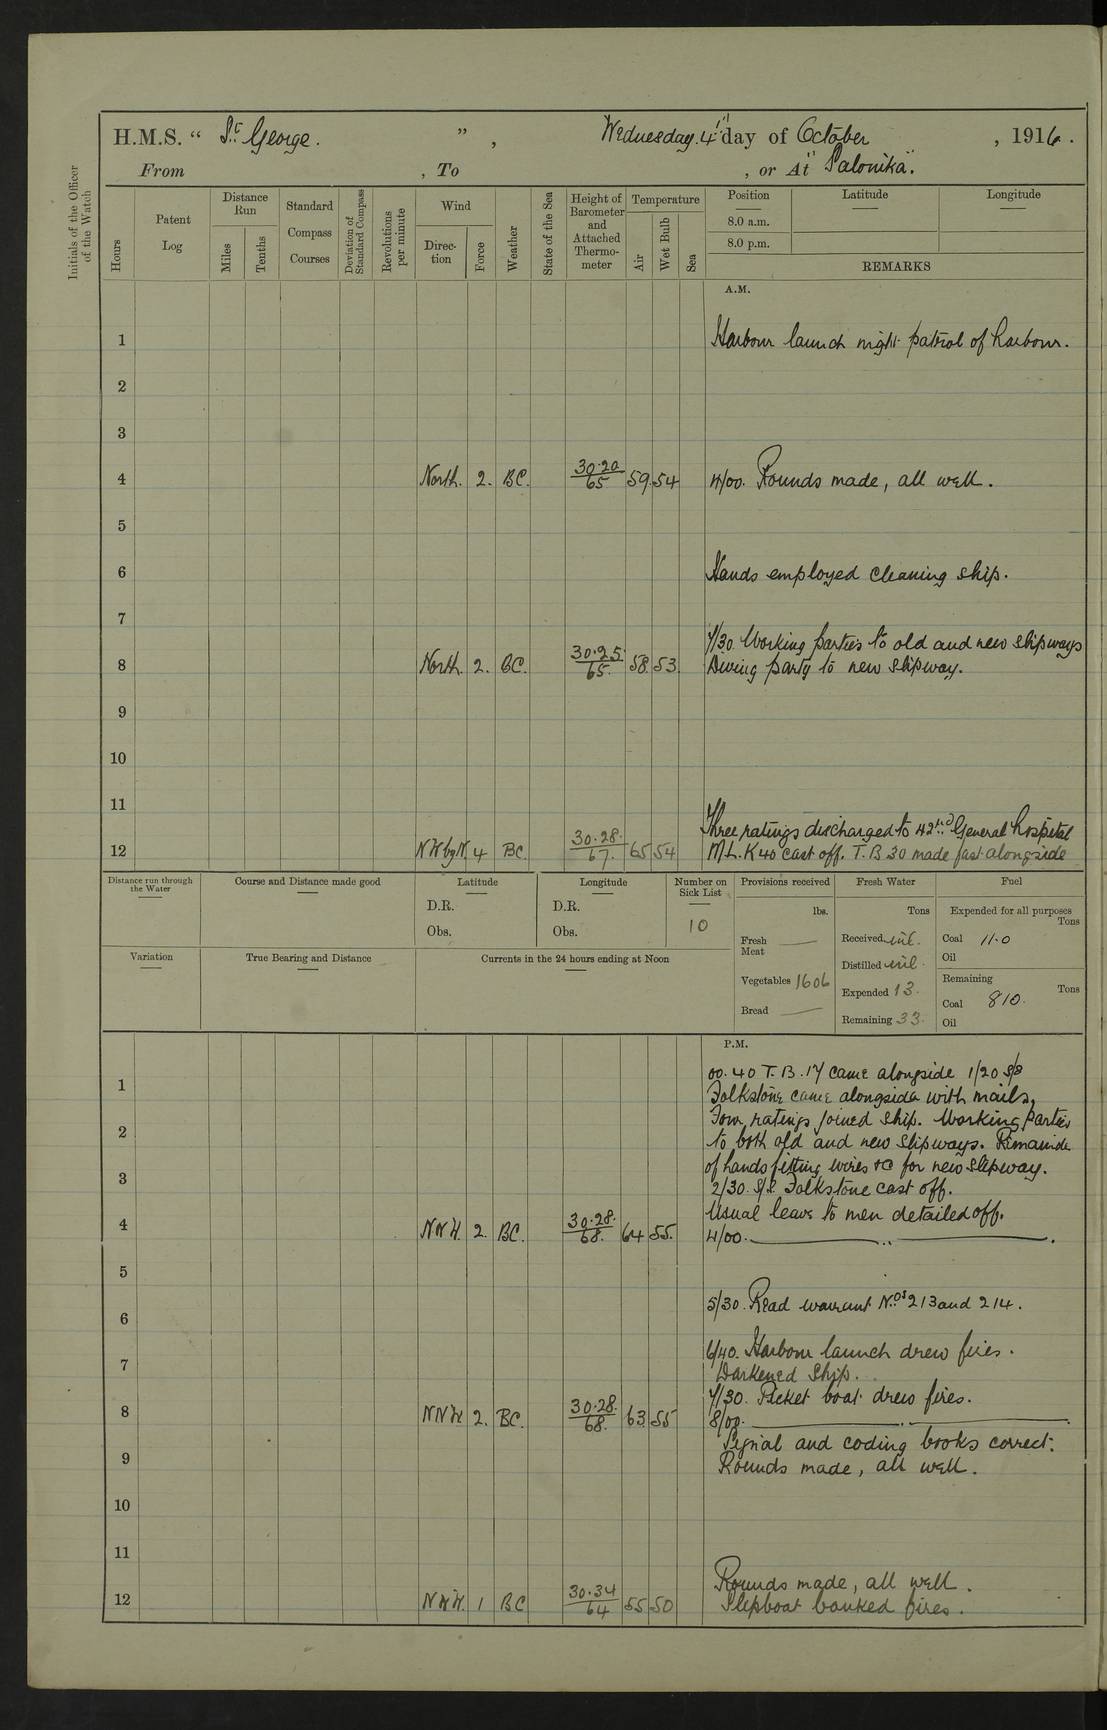 H.M.S. “ St George. ” , Wednesday. 4th day of October , 1916.
From , To , or At "Salonika".
Initials of the Officer of the Watch
Hours
Patent Log
Distance Run
Miles
Tenths
Standard Compass Courses
Deviation of Standard Compass
Revolutions per minute
Wind
Direction
Force
Weather
State of the Sea
Height of Barometer and Attached Thermometer
Temperature
Air
Wet Bulb
Sea
Position Latitude Longitude
8.0 a.m.
8.0 p.m.
REMARKS
A.M.
1 Harbour launch night patrol of harbour.
2
3
4 North. 2. BC. 30.20/65 59. 54 4/00. Rounds made, all well.
5
6 Hands employed cleaning ship.
7
7/30. Working parties to old and new slipways
8 North. 2. BC. 30.25/65. 58. 53. Diving party to new slipway.
9
10
11
Three ratings discharged to 42nd General hospital
12 NW by N. 4 BC. 30.28./67. 65 54 M.L. K40 cast off. T.B 30 made fast alongside
Distance run through the Water
Course and Distance made good
Latitude
D.R.
Obs.
Longitude
D.R.
Obs.
Number on Sick List
10
Provisions received
lbs.
Fresh Meat —
Vegetables 1606
Bread —
Fresh Water
Tons
Received nil.
Distilled nil.
Expended 13.
Remaining 33.
Fuel
Expended for all purposes
Tons
Coal 11.0
Oil
Remaining
Tons
Coal 810.
Oil
Variation
True Bearing and Distance
Currents in the 24 hours ending at Noon
P.M.
00.40 T.B.17 came alongside 1/20 S/S
1 Folkstone came alongside with mails,
Four ratings joined ship. Working parties
2 to both old and new slipways. Remainde
of hands fitting wires &c for new slipway.
3 2/30. S/S. Folkstone cast off.
Usual leave to men detailed off.
4 NNW. 2. BC. 30.28./68. 64 55. 4/00. — .. — .
5
5/30. Read warrant Nos 213 and 214.
6
6/40. Harbour launch drew fires.
7 Darkened Ship.
7/30. Picket boat drew fires.
8 NNW 2. BC. 30.28./68. 63. 55 8/00. — . — .
Signal and coding books correct.
9 Rounds made, all well.
10
11
Rounds made, all well.
12 NNW. 1 BC 30.34/64 55 50 Slipboat banked fires.